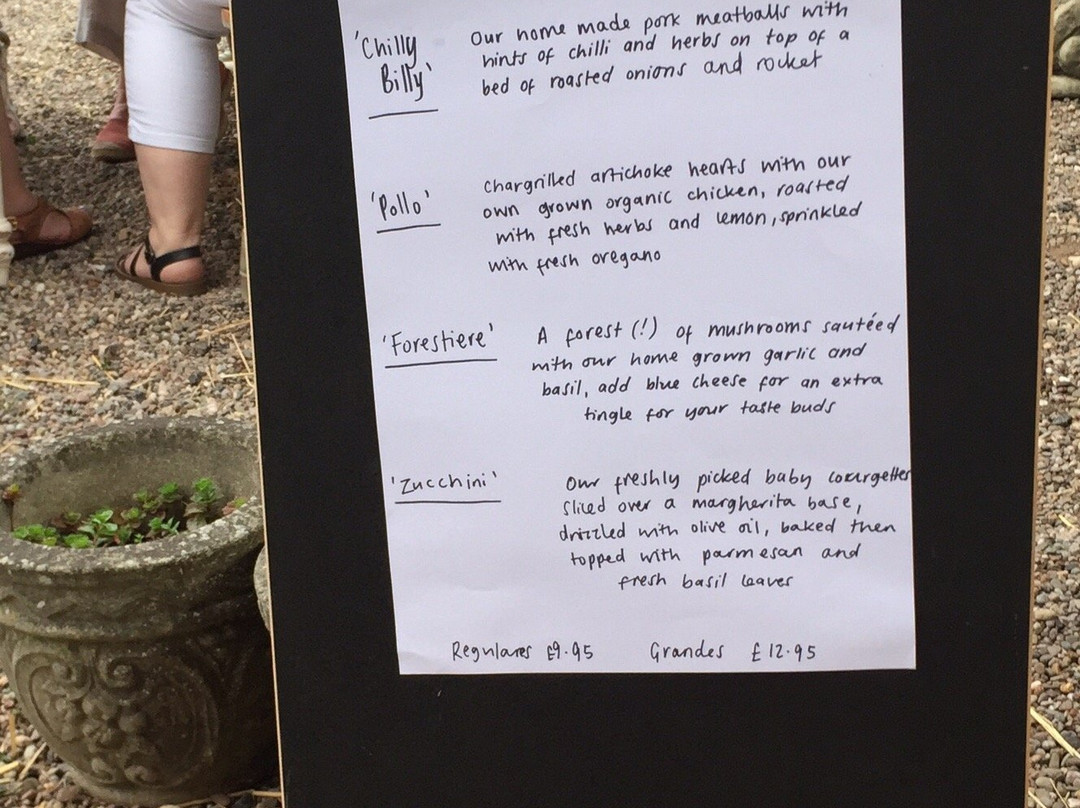 'Chilly
Billy'
Our home made pork meatballs with
hints of chilli and herbs on top of a
bed of roasted onions and rocket
'Pollo'
Chargrilled artichoke hearts with our
own grown organic chicken, roasted
with fresh herbs and lemon, sprinkled
with fresh oregano
'Forestiere'
A forest (!) of mushrooms sautéed
with our home grown garlic and
basil, add blue cheese for an extra
tingle for your taste buds
'Zucchini'
Our freshly picked baby courgettes
sliced over a margherita base,
drizzled with olive oil, baked then
topped with parmesan and
fresh basil leaves
Regulares £9.95 Grandes £12.95